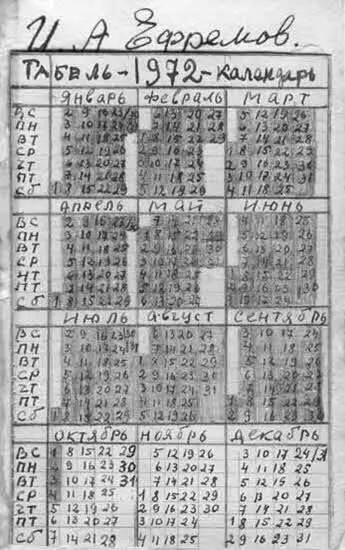 И. А Ефремов.
ТАБЕЛЬ-1972-календарь
ЯНВАРЬ ФЕВРАЛЬ МАРТ
ВС 2 9 16 23/30 6 13 20 27 5 12 19 26
ПН 3 10 17 24/31 7 14 21 28 6 13 20 27
ВТ 4 11 18 25 1 8 15 22 29 7 14 21 28
СР 5 12 19 26 2 9 16 23 1 8 15 22 29
ЧТ 6 13 20 27 3 10 17 24 2 9 16 23 30
ПТ 7 14 21 28 4 11 18 25 3 10 17 24 31
СБ 1 8 15 22 29 5 12 19 26 4 11 18 25
АПРЕЛЬ МАЙ ИЮНЬ
ВС 2 9 16 23/30 7 14 21 28 4 11 18 25
ПН 3 10 17 24 1 8 15 22 29 5 12 19 26
ВТ 4 11 18 25 2 9 16 23 30 6 13 20 27
СР 5 12 19 26 3 10 17 24 31 7 14 21 28
ЧТ 6 13 20 27 4 11 18 25 1 8 15 22 29
ПТ 7 14 21 28 5 12 19 26 2 9 16 23 30
СБ 1 8 15 22 29 6 13 20 27 3 10 17 24
ИЮЛЬ АВГУСТ СЕНТЯБРЬ
ВС 2 9 16 23/30 6 13 20 27 3 10 17 24
ПН 3 10 17 24/31 7 14 21 28 4 11 18 25
ВТ 4 11 18 25 1 8 15 22 29 5 12 19 26
СР 5 12 19 26 2 9 16 23 30 6 13 20 27
ЧТ 6 13 20 27 3 10 17 24 31 7 14 21 28
ПТ 7 14 21 28 4 11 18 25 1 8 15 22 29
СБ 1 8 15 22 29 5 12 19 26 2 9 16 23 30
ОКТЯБРЬ НОЯБРЬ ДЕКАБРЬ
ВС 1 8 15 22 29 5 12 19 26 3 10 17 24/31
ПН 2 9 16 23 30 6 13 20 27 4 11 18 25
ВТ 3 10 17 24 31 7 14 21 28 5 12 19 26
СР 4 11 18 25 1 8 15 22 29 6 13 20 27
ЧТ 5 12 19 26 2 9 16 23 30 7 14 21 28
ПТ 6 13 20 27 3 10 17 24 1 8 15 22 29
СБ 7 14 21 28 4 11 18 25 2 9 16 23 30